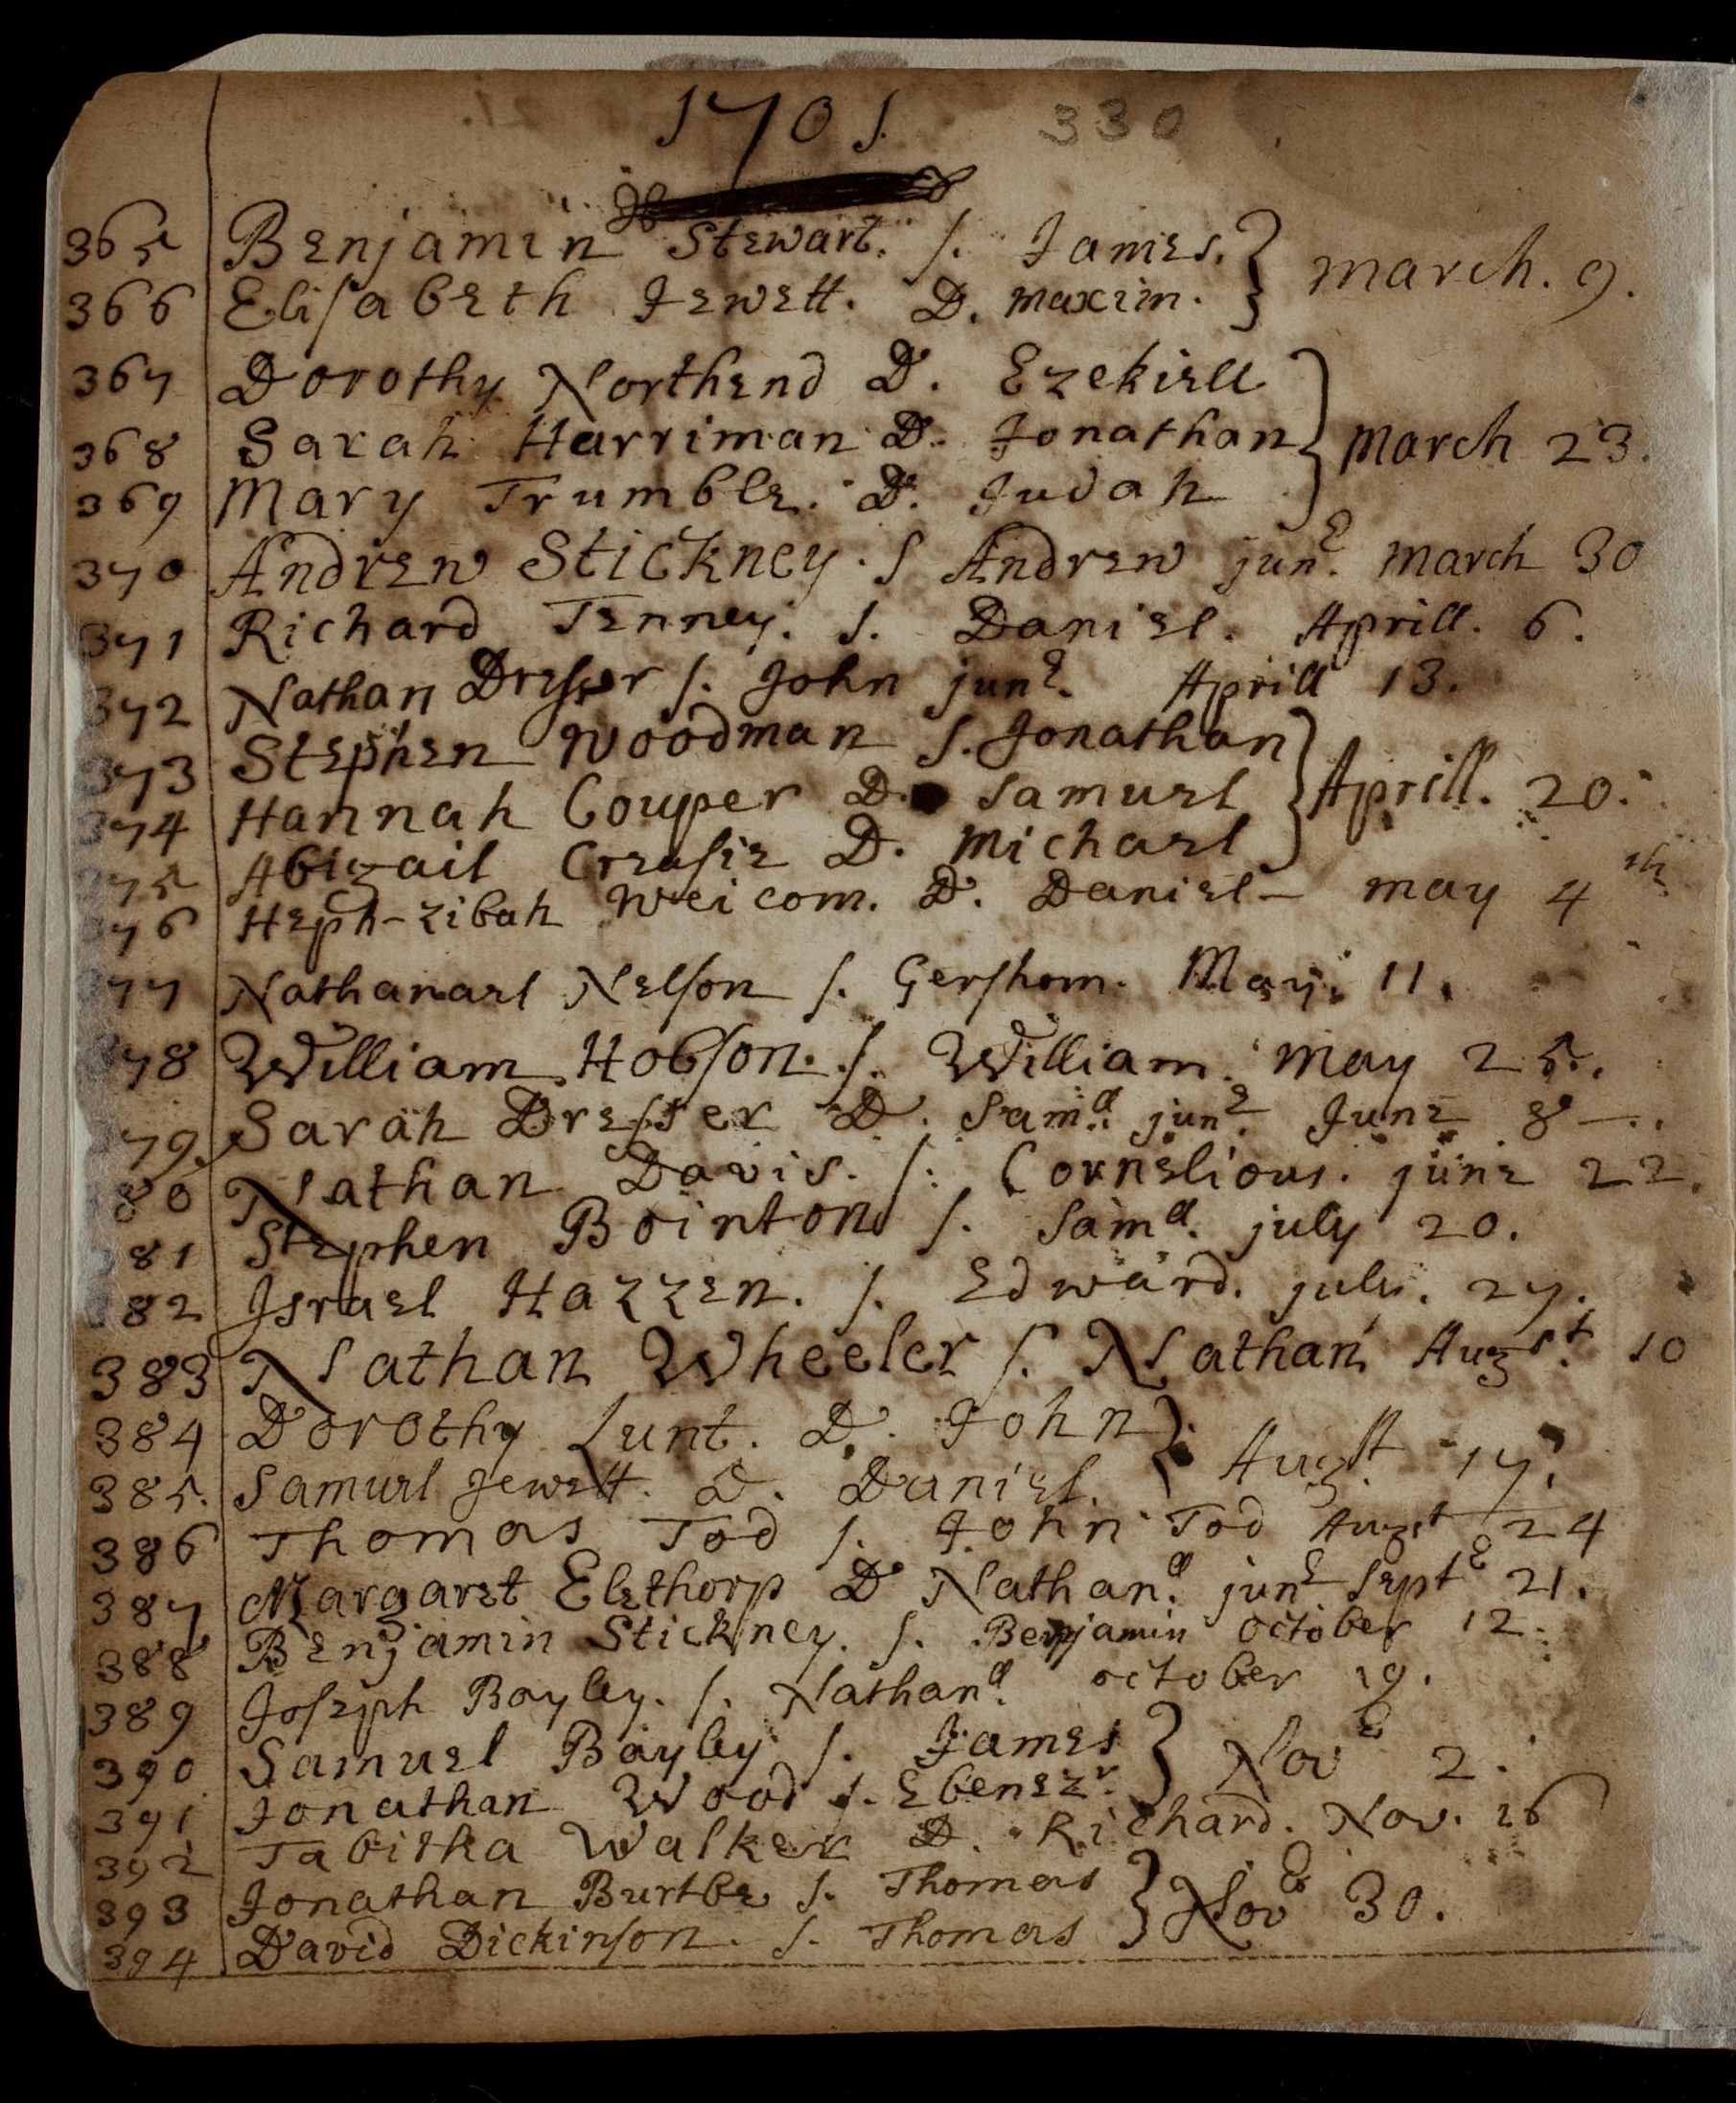 1701. 330
365 Benjamin Stewart. s. James. } march. 9.
366 Elisabeth Jewett. D. maxim.
367 Dorothy Northend D. Ezekiell
368 Sarah Harriman D. Jonathan } march 23.
369 Mary Trumble. D. Judah
370 Andrew Stickney. s Andrew junr. march 30
371 Richard Tenney. s. Daniel. Aprill. 6.
372 Nathan Dresser s. John junr. Aprill 13.
373 Stephen Woodman s. Jonathan
374 Hannah Couper D. Samuel } Aprill. 20.
375 Abigail Creasie D. Michael
376 Heph-zibah Weicom. D. Daniel – may 4th
377 Nathanael Nelson s. Gershom. May. 11.
378 William Hobson. s. William. may 25.
379. Sarah Dresser D. Samll. junr. June 8 –.
380 Nathan Davis. s. Cornelious. june 22.
381 Stephen Bointon s. Samll. july 20.
382 Israel Hazzen. s. Edward. july. 27.
383 Nathan Wheeler s. Nathan Augst. 10
384 Dorothy Lunt. D. John } Augst 17.
385. Samuel Jewett. D. Daniel.
386 Thomas Tod s. John Tod Augst 24
387 Margaret Elethorp D Nathanll. junr Septr 21.
388 Benjamin Stickney. s. Benjamin october 12.
389 Joseph Bayley. s. Nathanll. october 19.
390 Samuel Bayley s. James } Novr 2.
391 Jonathan Wood s. Ebenezr.
392 Tabitha Walker D. Richard. Nov. 16
393 Jonathan Burtbe s. Thomas } Novr 30.
394 David Dickinson. s. Thomas